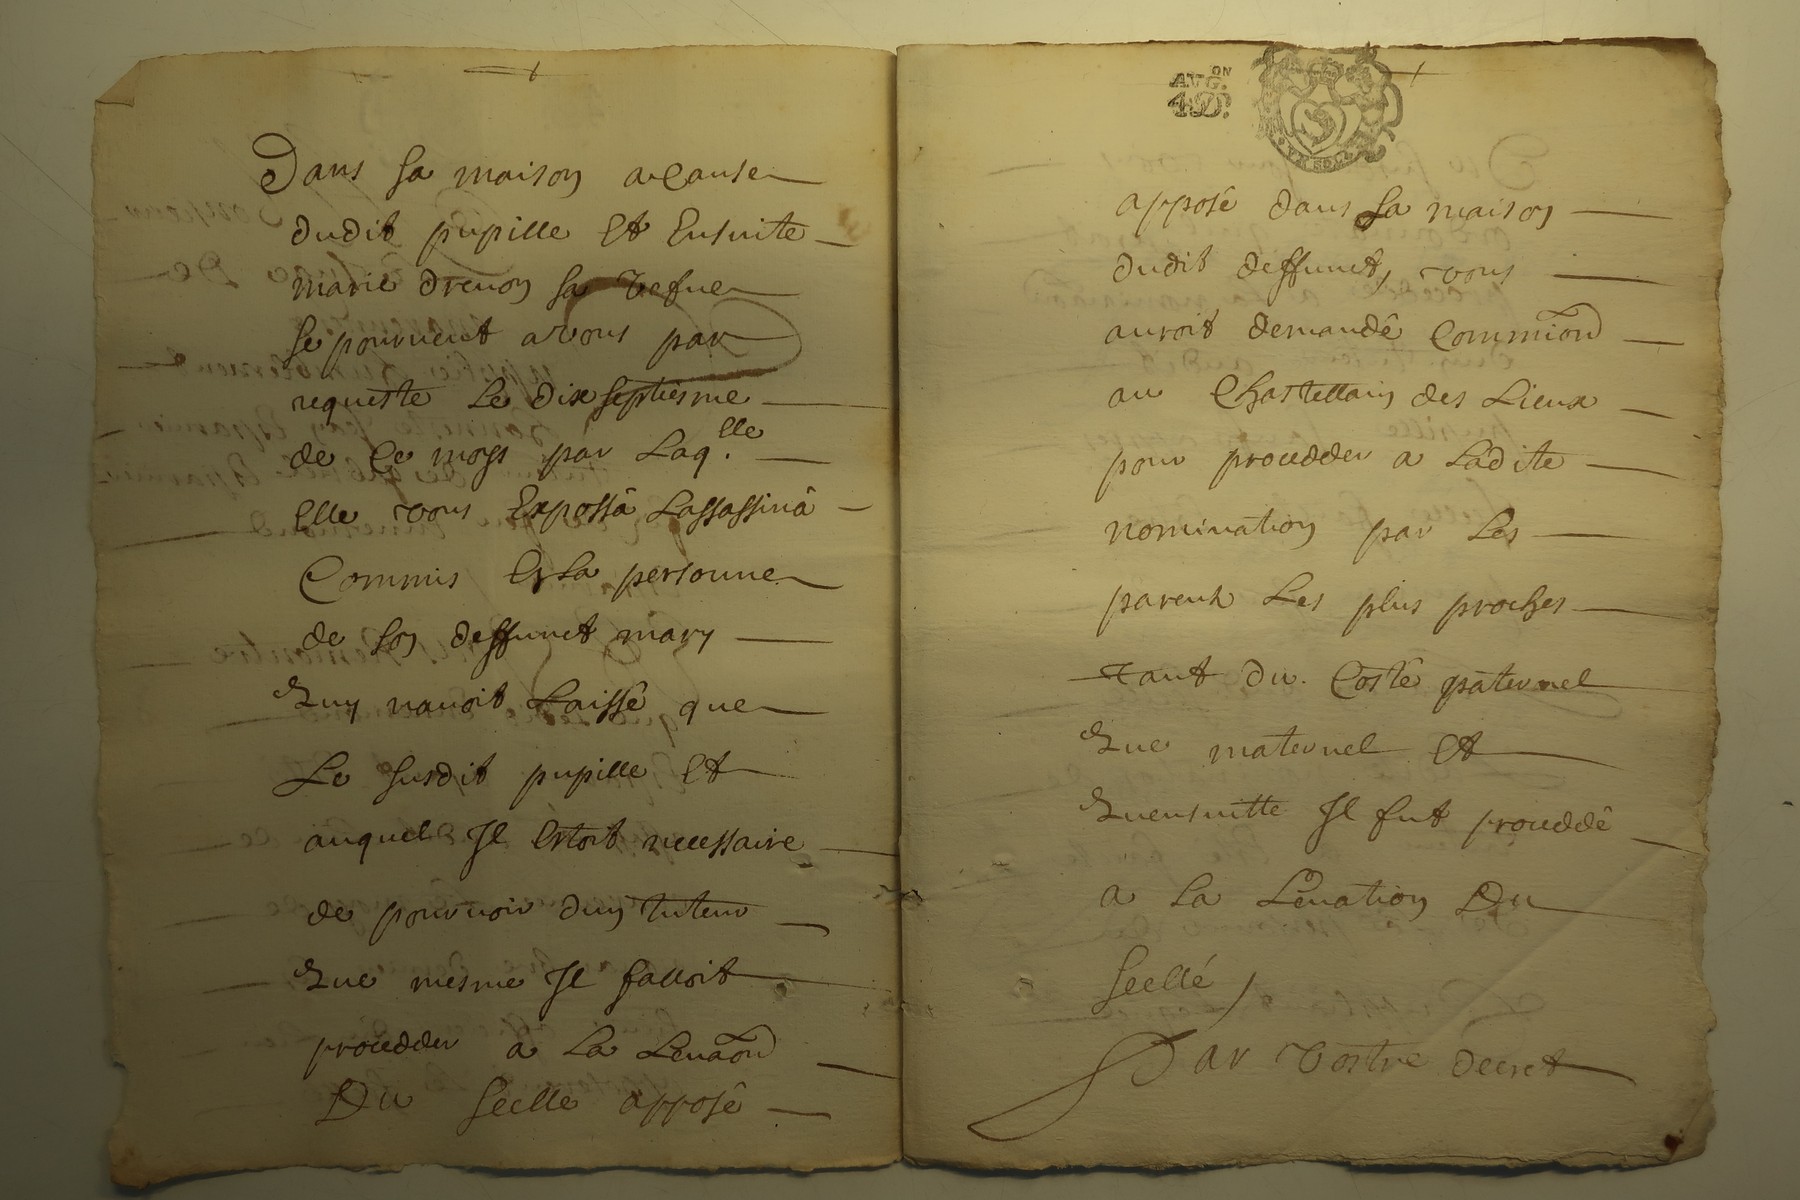 Dans sa maison a cause
dudit pupille Et Ensuite
marie drevon sa vefue
se pourueut a vous par
requeste Le dix septiesme
de Ce moys par Laq.lle
Elle vous Expossâ Lassassinâ
Commis En La personne
de son deffunct mary
Quy nauoit Laissé que
Le susdit pupille Et
auquel Il Estoit necessaire
de pouruoir dun tuteur
Que mesme Il falloit
procedder a La Leuaon
Du scelle apposê
AVG.ON
apposé dans sa maison
dudit deffunct, vous
auroit demandê Commion
au Chastellain des Lieux
pour procedder a Ladite
nomination par Les
parentz Les plus proches
tant du Costê paternel
Que maternel Et
Quensuitte Il fut proceddê
a La Leuation Du
scellé,
Par Vostre decret